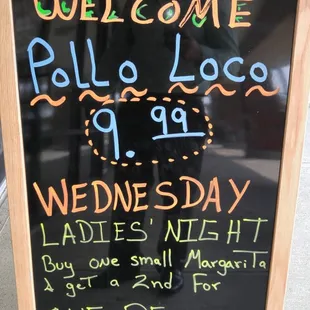 WELCOME
POLLO LOCO
9.99
WEDNESDAY
LADIES' NIGHT
Buy one small MargariTa
& geT a 2nd For